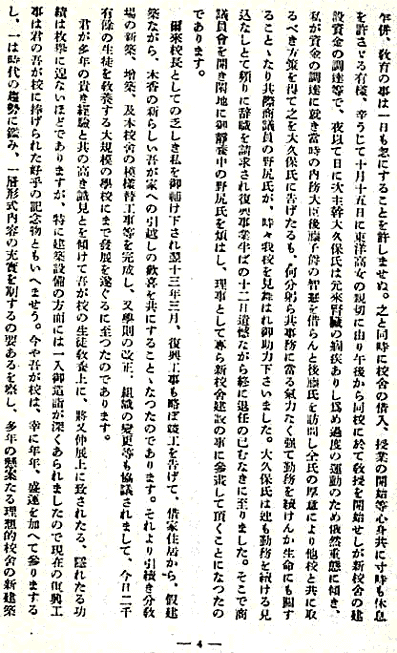 乍併、敎育の事は一日も忽にすることを許しませぬ。之と同時に校舍の借入、授業の開始等心身共に寸時も休息
を許さゞる有樣、辛うじて十月十五日に東洋高女の親切に由り午後から同校に於て敎授を開始せしが新校舍の建
設資金の調達等で、夜以て日に次ぎ主幹大久保氏は元來腎臟の痼疾ありし爲め過度の運動のため俄然重態に傾き、
私が資金の調達に就き當時の内務大臣後藤子爵の智慧を借らんと後藤氏を訪問し仝氏の厚意により他校と共に取
るべき方策を得て之を大久保氏に告げたるも、何分躬ら共事務に當る氣力なく强て勤務を續けんか生命にも關す
ることゝなり共際商議員の野尻氏が、時々我校を見舞はれ御助力下さいました。大久保氏は迚も勤務を續ける見
込なしとて頻りに辭職を請求され復興事業半ばの十二月遺憾ながら終に退任の已むなきに至りました。そこで商
議員會を開き閑地に御靜養中の野尻氏を煩はし、理事として專ら新校舍建設の事に參畫して頂くことになつたの
であります。
爾來校長としての乏しき私を御輔け下され翌十三年三月、復興工事も略ぼ竣工を告げて、借家住居から、假建
築ながら、木香の新らしい吾が家への引越しの歡喜を共にすることゝなつたのであります。それより引續き分敎
場の新築、增築、及木校舍の模樣替工事等を完成し、又學則の改正、組織の變更等も協議されまして、今日二千
有餘の生徒を敎養する大規模の學校にまで發展を遂ぐるに至つたのであります。
君が多年の貴き經驗と共の高き識見とを傾けて吾が校の生徒敎養上に、將又伸展上に致されたる、隱れたる功
績は枚擧に遑ないほどでありますが、特に建築設備の方面には一入御造詣が深くあられましたので現在の復興工
事は君の吾が校に捧げられた好孚の記念物ともいへませう。今や吾が校は、幸に年年、盛運を加へて參りまする
し、一は時代の趨勢に鑑み、一層形式內容の充實を期するの要あるを察し、多年の懸案たる理想的校舍の新建築
— 4 —